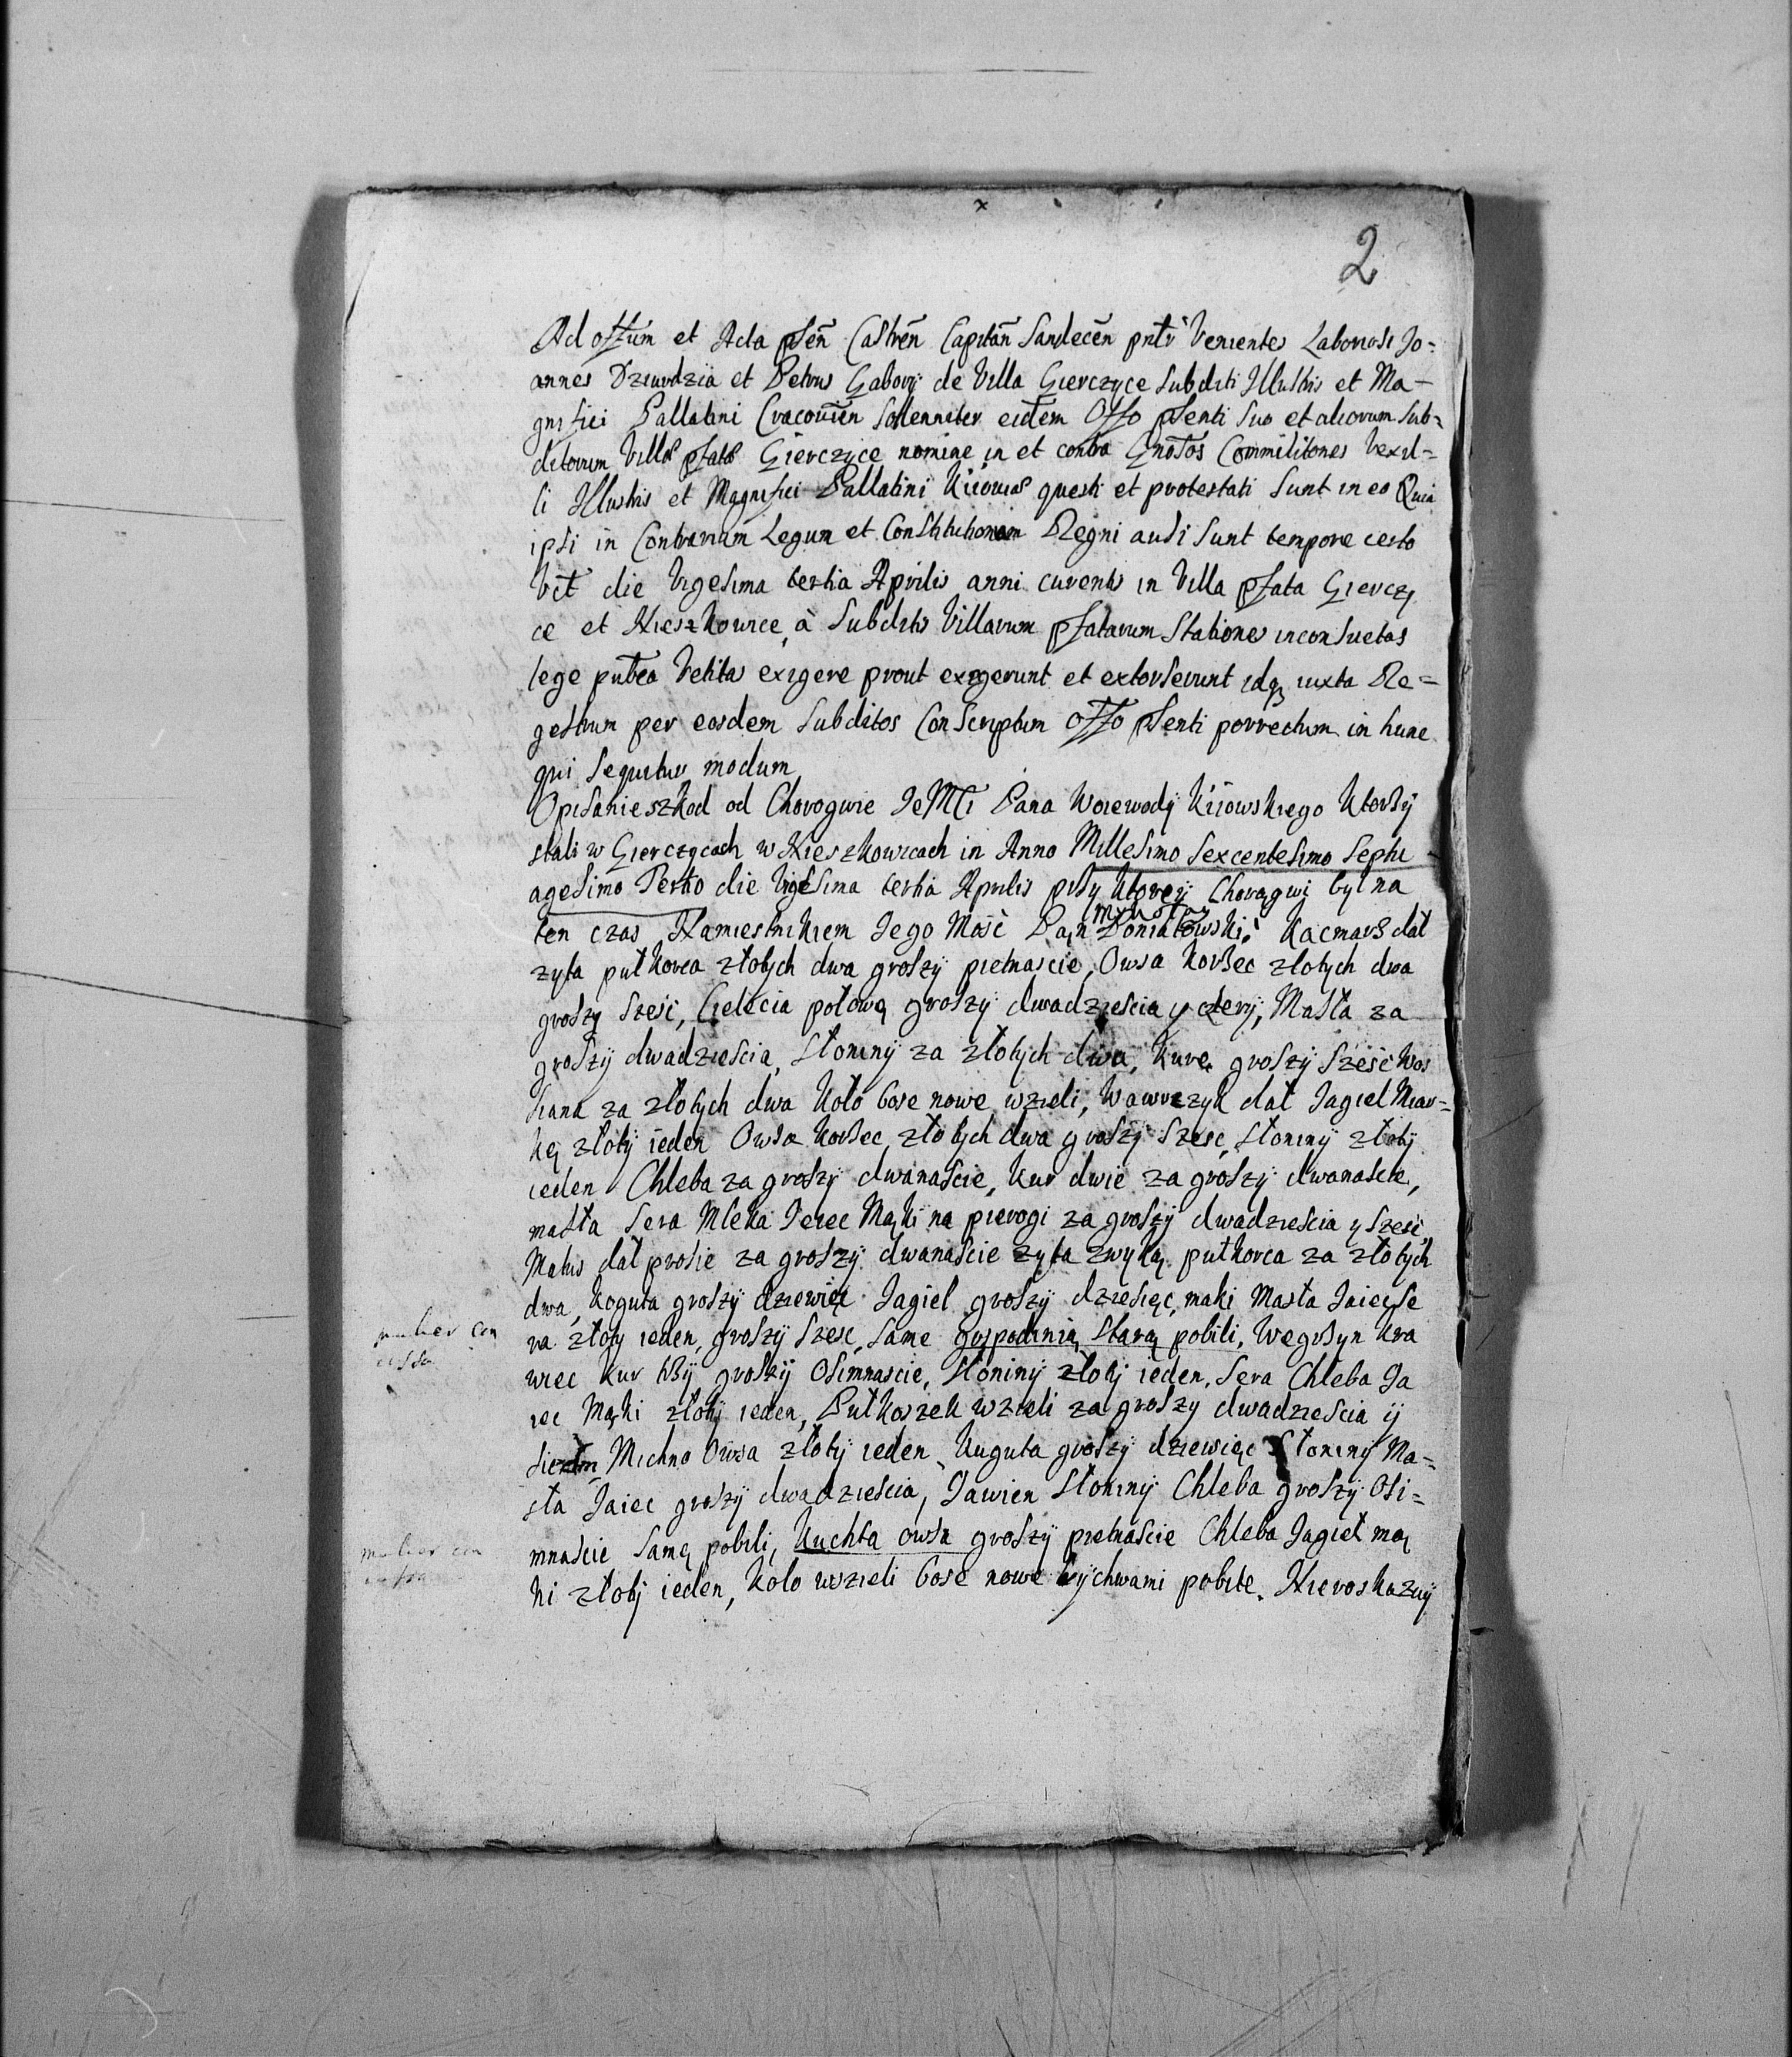 2
Ad offm̃ et Acta pſen̄ Caſtren̄ Capitan̄ Sandecen̄ pntr̃ Venientes Laboriosi Jo=
annes Dziurdzia et Petrus Gabory de Villa Gierczyce Subditi Illustris et Ma-
gnifici Pallatini Cracouien̄ Sollenniter eidem Offo pſenti Suo et aliorum Sub=
ditorum Villæ pfatæ Gierczyce nomine in et contra Gnoſos Commilitones Vexil=
li Illustris et Magnifici Pallatini Kiioviæ questi et protestati Sunt in eo Quia
ipſi in Contrarium Legum et Constitutionum Regni ausi Sunt tempore certo
Vtt die Vigesima tertia Aprilis anni currentis in Villa pfata Gierczy
ce et Nieszkowice à Subditis Villarum pfatarum Stationes inconsuetas
lege publ̃ca Vetitas exigere prout exigerunt et extorserunt idq3 iuxta Re=
gestrum per eosdem Subditos Conscriptum Offo pſenti porrectum in hunc
qui Sequitur modum
Opisanie szkod od Chorogwie Je Mči Pana Woiewody Kiiowskiego Ktorzy
stali w Gierczycach w Nieszkowicach in Anno Millesimo Sexcentesimo Septu
agesimo Tertio die Vigesima tertia Aprilis przy Ktorey Chorągwi był na
ten czas Namiestnikiem Jego Mość Pan Poniatowski. Kacmarz dał
zyta pułkorca złotych dwa groszy pietnascie, Owsa Korzec złotych dwa
groszy Sześć, Cielęcia połową groszy dwadziescia y cztery, Masła za
groszy dwadziescia, Słoniny za złotych dwa, Kurę groszy Sześć Wos
siana za złotych dwa Koło bose nowe wzieli, Wawrzyk dał Jagieł Miar=
kę złoty ieden Owsa Korzec złotych dwa groszy Szesc, Słoniny złoty
ieden Chleba za groszy dwanaście, Kur dwie za groszy dwanaście,
masła Sera Mleka Jeiec Mąki na pierogi za groszy dwadziescia y sześć,
Matus dał prosie za groszy dwanaście zyta zwyką pułkorca za złotych
dwa, Koguta groszy dziewięć Jagieł groszy dziesięć, maki Masła Jaiec Se
ra złoty ieden, groszy Szesc, Same gospodinią Starą pobili, Węgrzyn Kra
wiec Kur trzy groszy Osimnascie, Słoniny złoty ieden, Sera Chleba Ja
iec Mąki złoty ieden, Pułkoszek wzieli za groszy dwadziescia ij
siedm Michno Owsa złoty ieden Kuguta groszy dziewięc Słoniny Ma=
sła Jaiec groszy dwadziescia, Jawien Słoniny Chleba groszy Osi=
mnascie Samą pobili, Kuchta owsa groszy pietnaście Chleba Jagieł mą
ki złoty ieden, Koło wzieli bose nowe pobite. Nieroskazuy